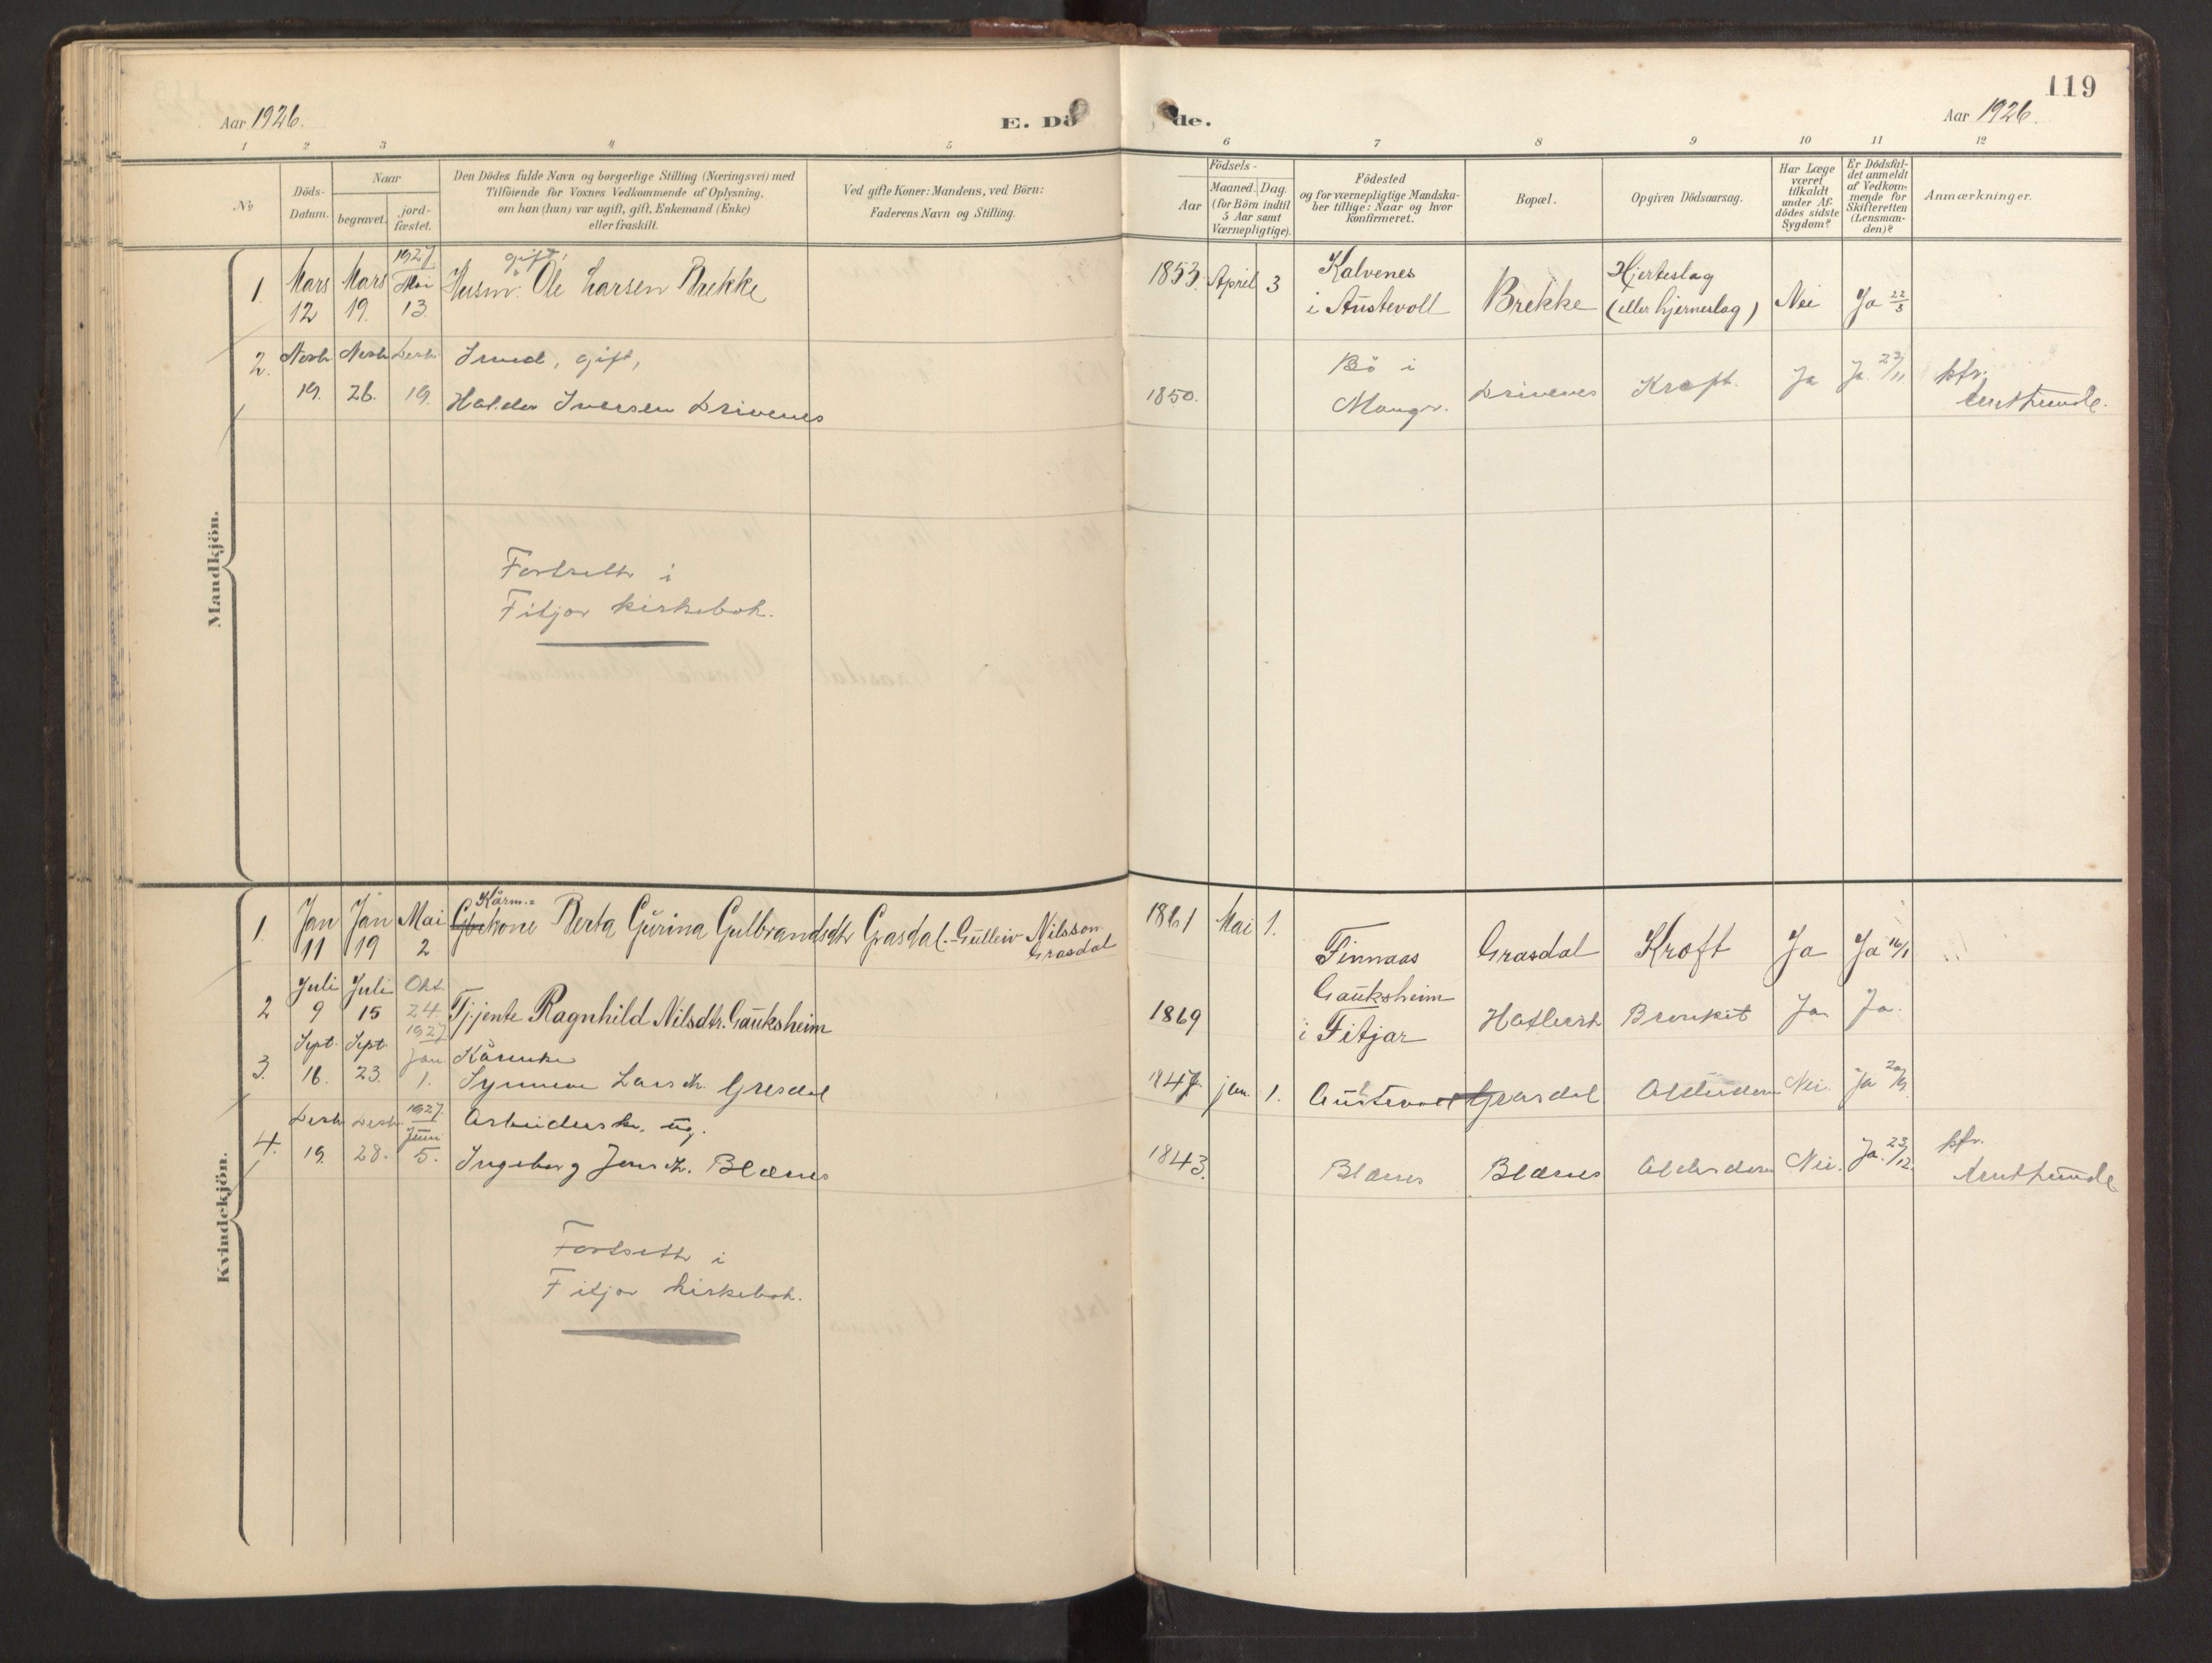 119
Aar 1926.
E. Dö
de.
Aar 1926.
1 2 3 4 5 6 7 8 9 10 11 12
No
Döds-
Datum.
Naar
begravet.
jord-
fæstet.
Den Dödes fulde Navn og borgerlige Stilling (Næringsvei) med
Tilföiende for Voxnes Vedkommende af Oplysning,
om han (hun) var ugift, gift, Enkemand (Enke)
eller fraskilt.
Ved gifte Koner: Mandens, ved Börn:
Faderens Navn og Stilling.
Födsels-
Aar
Maaned. Dag.
(for Börn indtil
5 Aar samt
Værnepligtige).
Födested
og for værnepligtige Mandska-
ber tillige: Naar og hvor
Konfirmeret.
Bopæl.
Opgiven Dödsaarsag.
Har Læge
været
tilkaldt
under Af-
dödes sidste
Sygdom?
Er Dödsfal-
det anmeldt
af Vedkom-
mende for
Skifteretten
(Lensman-
den)?
Anmærkninger.
Mandkjön.
1 Mars 12 Mars 19. 1927 Mai 13. Husm. gift: Ole Larsen Brekke 1853. April 3 Kalvenes i Austevoll Brekke Hjerteslag (eller hjerneslag) Nei Ja 22/3
2. Novb. 19. Novb. 26. Desb. 19. Smed, gift,
Haldor Iversen Drivenes 1850. Bö i Mangr. Drivenes Kreft. Ja Ja 23/11 kfr. Amthunde.
Fortsett i
Fitjar kirkebok.
Kvindekjön.
1. Jan 11 Jan 19 Mai 2 Kårm.= Gbrkone Berta Gurina Gulbrandsdtr Grasdal. Gulleiv Nilsson Grasdal 1861 Mai 1. Finnaas Grasdal Kræft Ja Ja 16/1
2 Juli 9 Juli 15 Okt. 24. Tj.jente Ragnhild Nilsdtr. Gauksheim 1869 Gauksheim i Fitjar Hatlestr. Bronkit Ja. Ja.
3. Sept. 16. Sept. 23. 1927 Jan 1. Kårenke
Synneve Larsdt. Grasdal 1847. jan. 1. Austevoll Grasdal Alderdom Nei. Ja 20/9.
4. Desb. 19. Desb. 28. 1927. Juni 5. Arbeiderske, ug.
Ingeborg Jensdt. Blænes 1843. Blænes Blænes Alderdom Nei. Ja. 23/12. kfr. Amthunde
Fortsett i
Fitjar kirkebok.